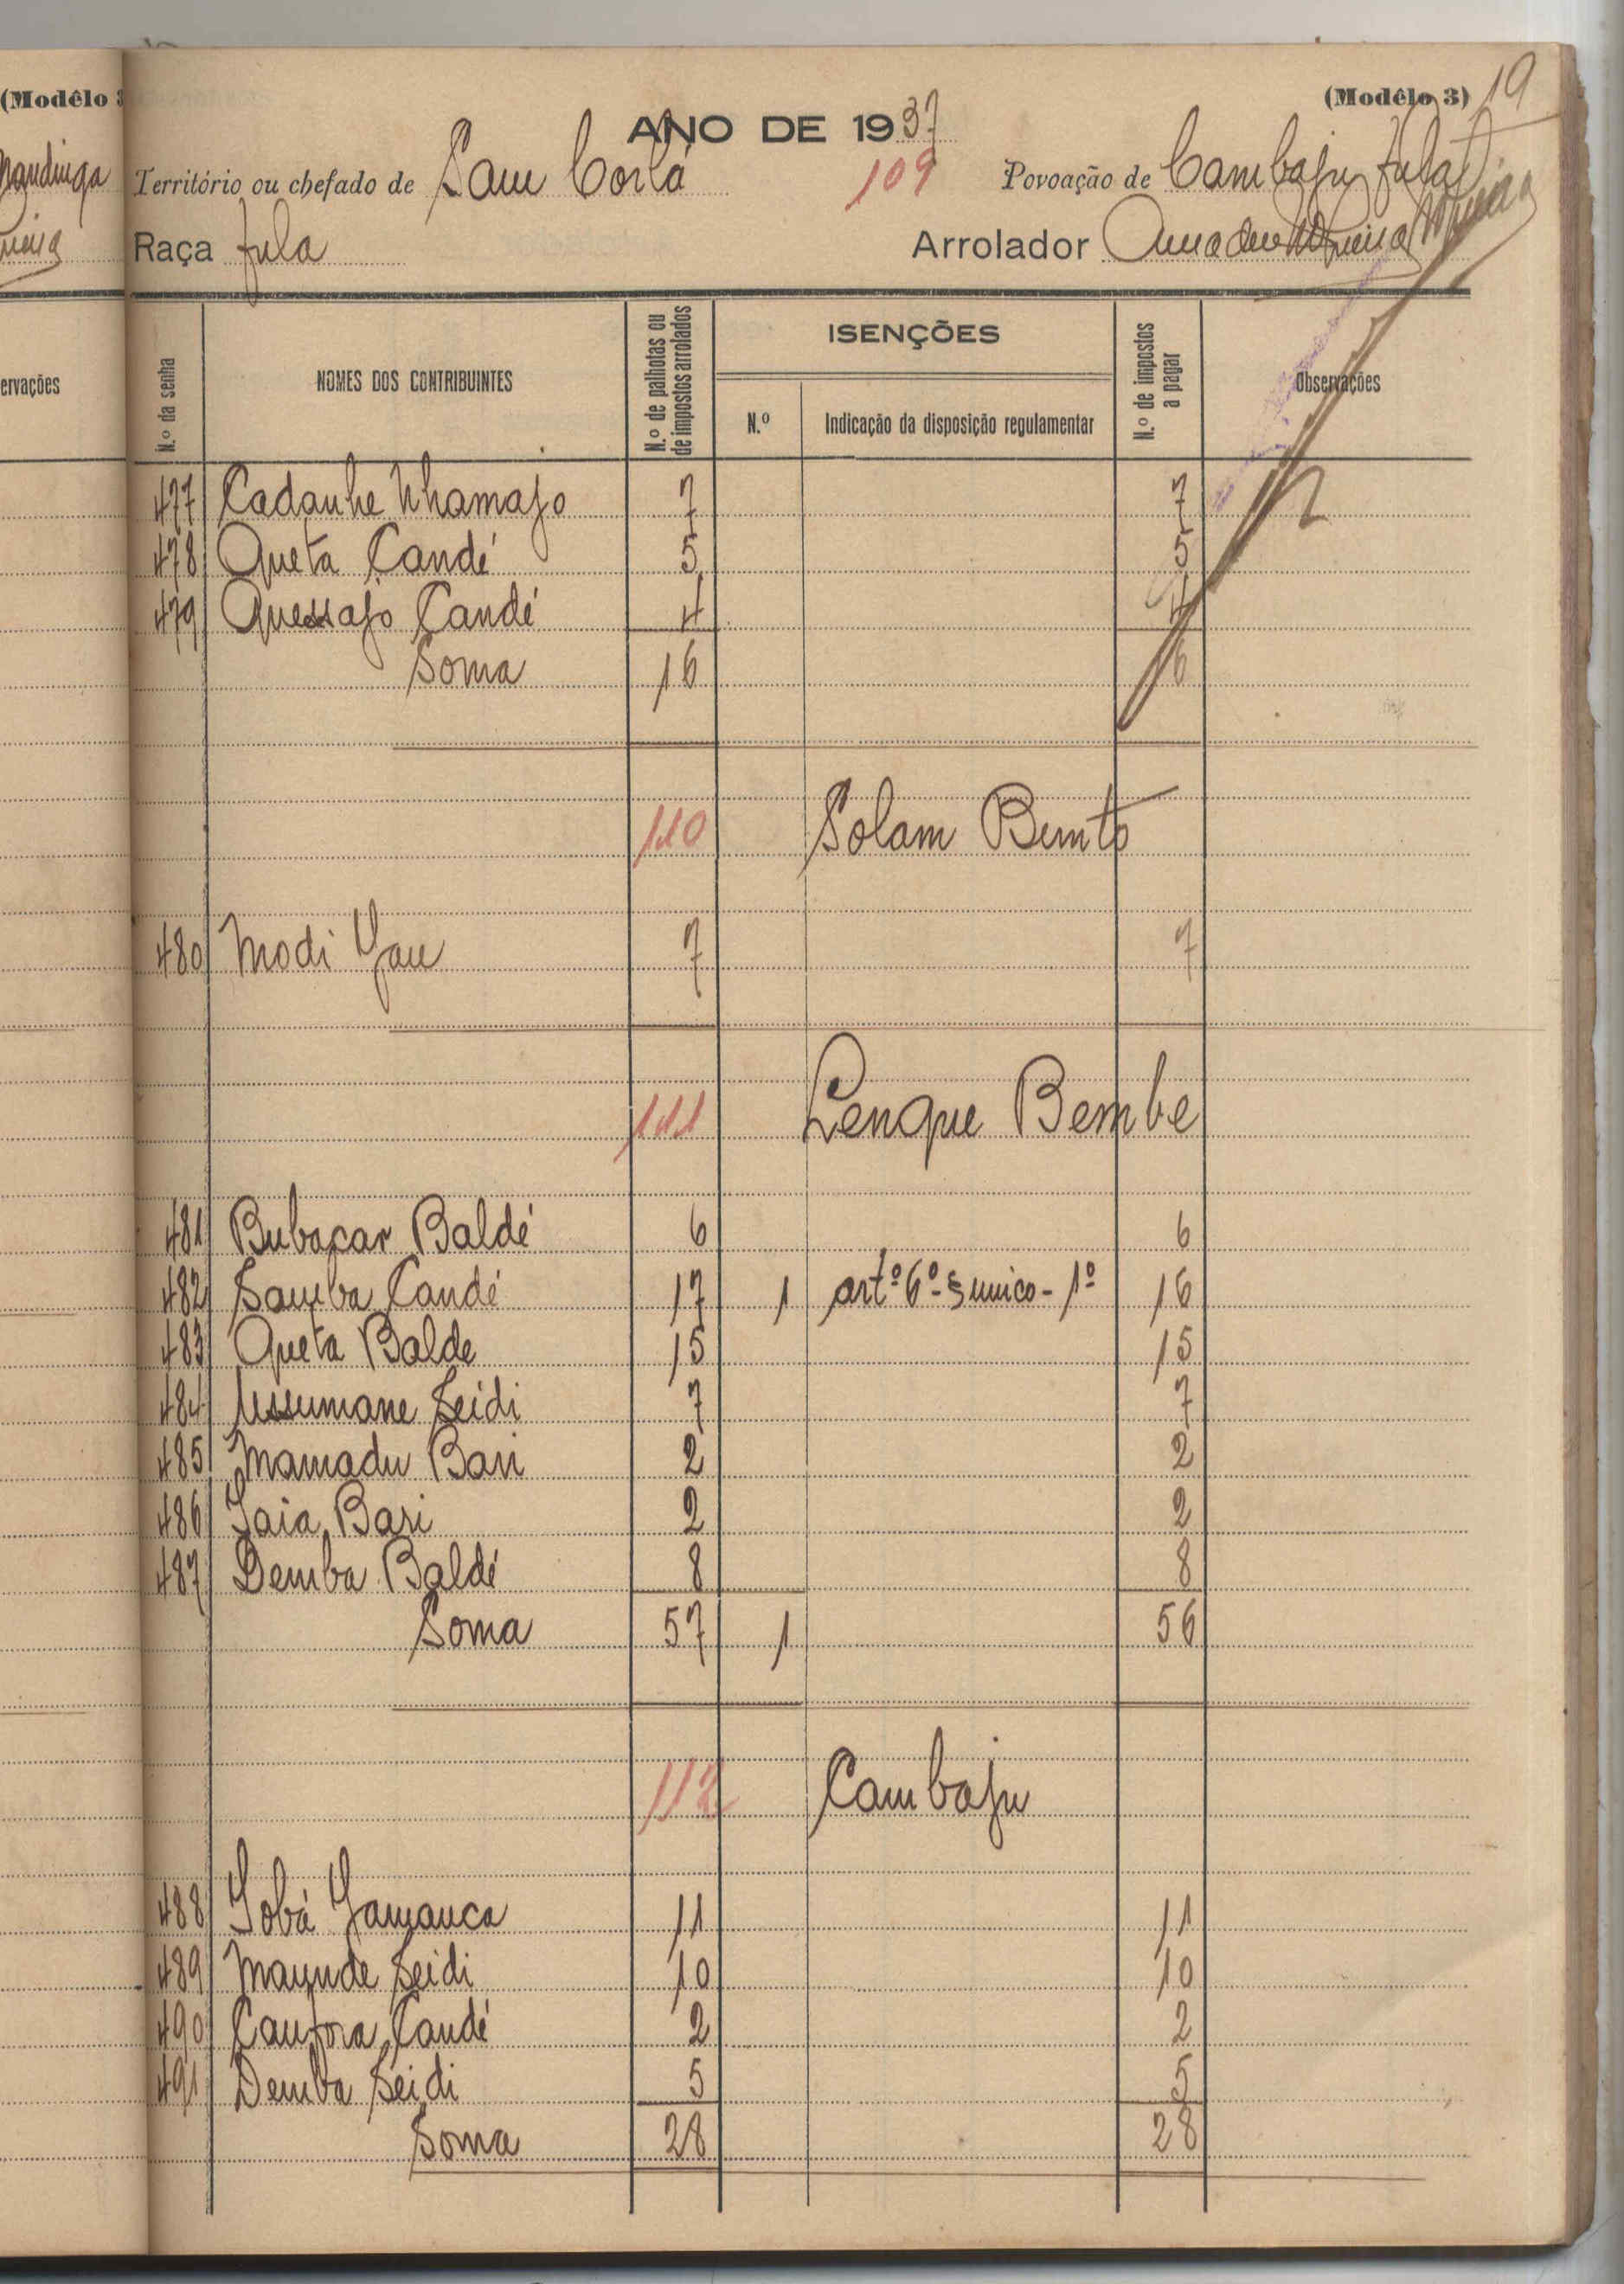 (Modêlo 3) 19
ANO DE 1937
Território ou chefado de Sam Corlá 109 Povoação de Cambaju Fula
Raça Fula Arrolador Amadeu Nogueira
ervações
N.º da senha
NOMES DOS CONTRIBUINTES
N.º de palhotas ou de impostos arrolados
ISENÇÕES
N.º
Indicação da disposição regulamentar
N.º de impostos a pagar
Observações
477 Cadanhe Nhamajo 7 7
478 Queta Candé 5 5
479 Quessajo Candé 4 4
Soma 16 16
110 Solam Bento
480 Modi Jau 7 7
111 Lenque Bembe
481 Bubacar Baldé 6 6
482 Samba Candé 17 1 artº 6º - § unico - 1º 16
483 Queta Balde 15 15
484 Ussumane Seidi 7 7
485 Mamadu Bari 2 2
486 Iaia Bari 2 2
487 Demba Baldé 8 8
Soma 57 1 56
112 Cambaju
488 Iobá Jamanca 11 11
489 Maunde Seidi 10 10
490 Candé 2 2
491 Demba Seidi 5 5
Soma 28 28